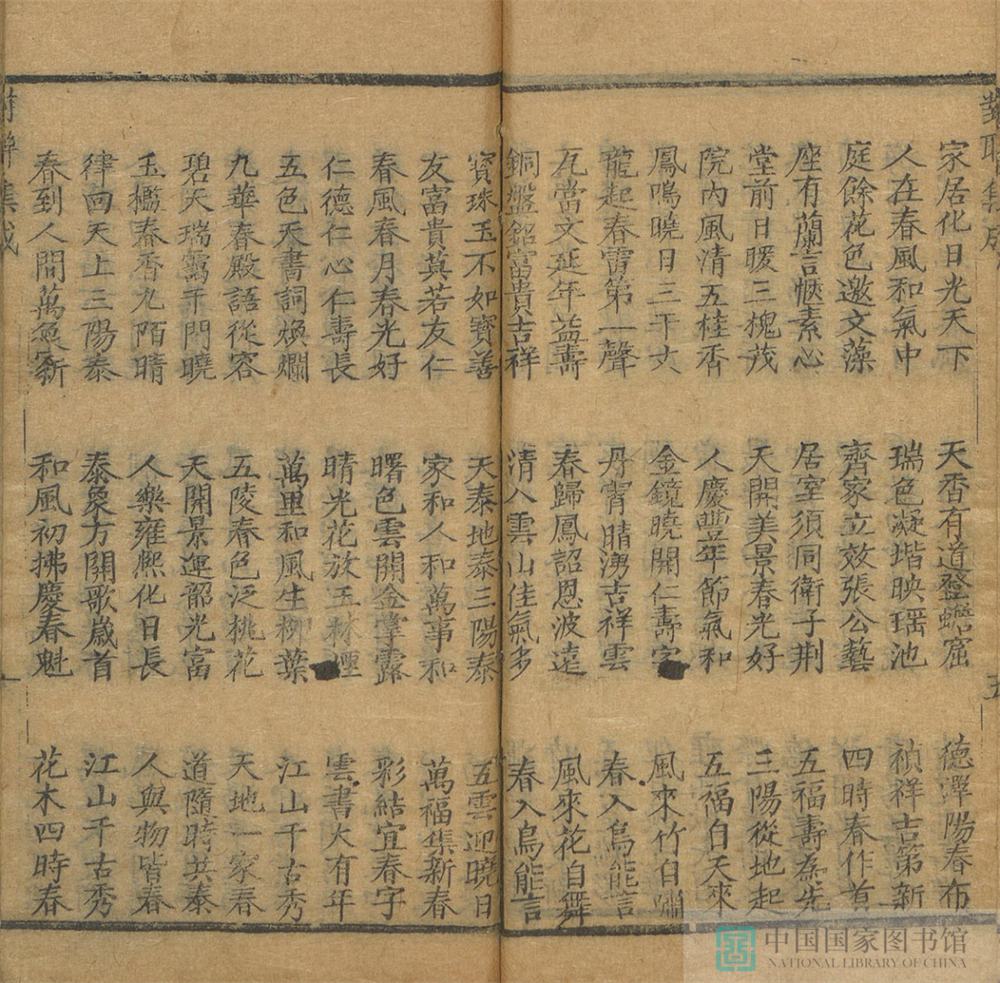 對聯集成
家居化日光天下
人在春風和氣中
庭餘花色邀文藻
座有蘭言愜素心
堂前日暖三槐茂
院内風清五桂香
鳳鳴曉日三千六
龍起春雷第一聲
瓦當文延年益壽
銅盤銘富貴吉祥
天香有道登蟾窟
瑞色凝堦映瑶池
齊家立效張公藝
居室須同衛子荆
天開美景春光好
人慶豐年節氣和
金鏡曉開仁壽字
丹霄晴湧吉祥雲
春歸鳳詔恩波遠
清入雲山佳氣多
德澤陽春布
禎祥吉第新
四時春作首
五福壽為先
三陽從地起
五福自天來
風來竹自嘯
春入鳥能言
風來花自舞
春入鳥能言
寳珠玉不如寳善
友富貴莫若友仁
春風春月春光好
仁德仁心仁壽長
五色天書詞煥爛
九華春殿語從容
碧天瑞靄千門曉
玉檻春香九陌晴
律回天上三陽泰
春到人間萬象新
天泰地泰三陽泰
家和人和萬事和
曙色雲開金掌露
晴光花放玉林煙
萬里和風生柳葉
五陵春色泛桃花
天開景運韶光富
人樂雍熙化日長
泰象方開歌歲首
和風初拂慶春魁
五雲迎曉日
萬福集新春
彩結宜春字
雲書大有年
江山千古秀
天地一家春
道隨時共泰
人與物皆春
江山千古秀
花木四時春
中国国家图书馆
NATIONAL LIBRARY OF CHINA